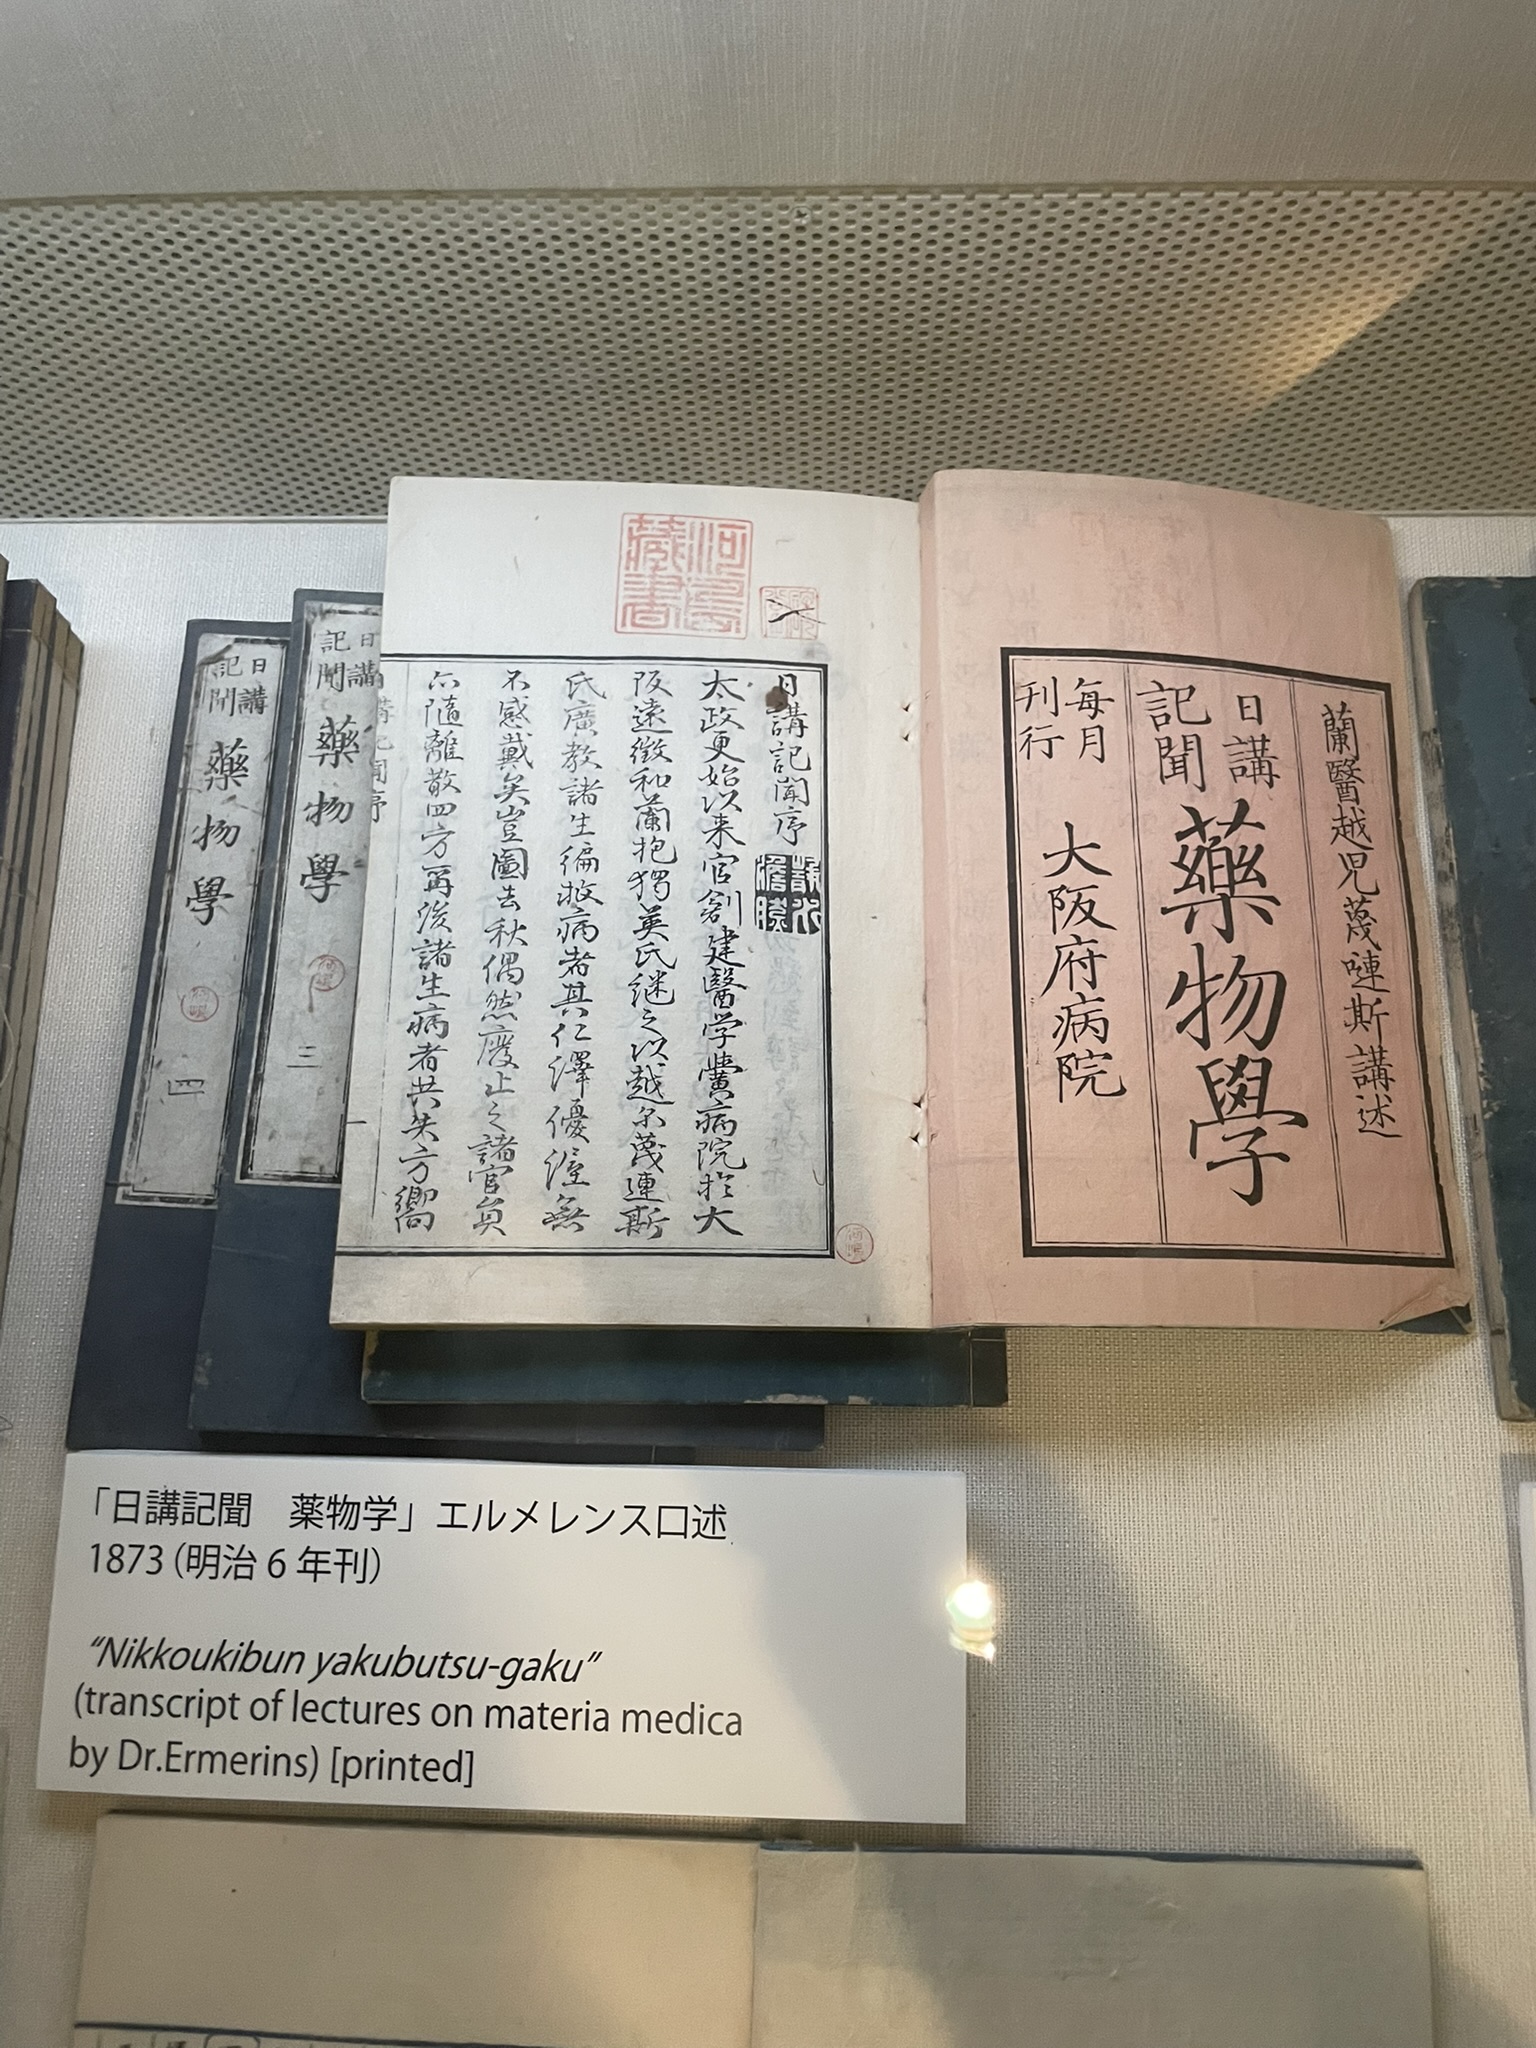 蘭醫越児蔑嗹斯講述
日講
記聞
藥物學
每月
刊行
大阪府病院
日講記聞序
太政更始以来官創建醫学黌病院於大
阪遠徴和蘭抱獨英氏継之以越尔蔑連斯
氏廣教諸生徧救病者其仁澤優渥無
不感戴矣豈圖去秋偶然廢止之諸官員
亦隨離散四方爾後諸生病者共失方嚮
河
藏書
日講
記聞
藥物學
三
日講
記聞
藥物學
四
「日講記聞　薬物学」エルメレンス口述
1873（明治 6 年刊）
“Nikkoukibun yakubutsu-gaku”
(transcript of lectures on materia medica
by Dr.Ermerins) [printed]